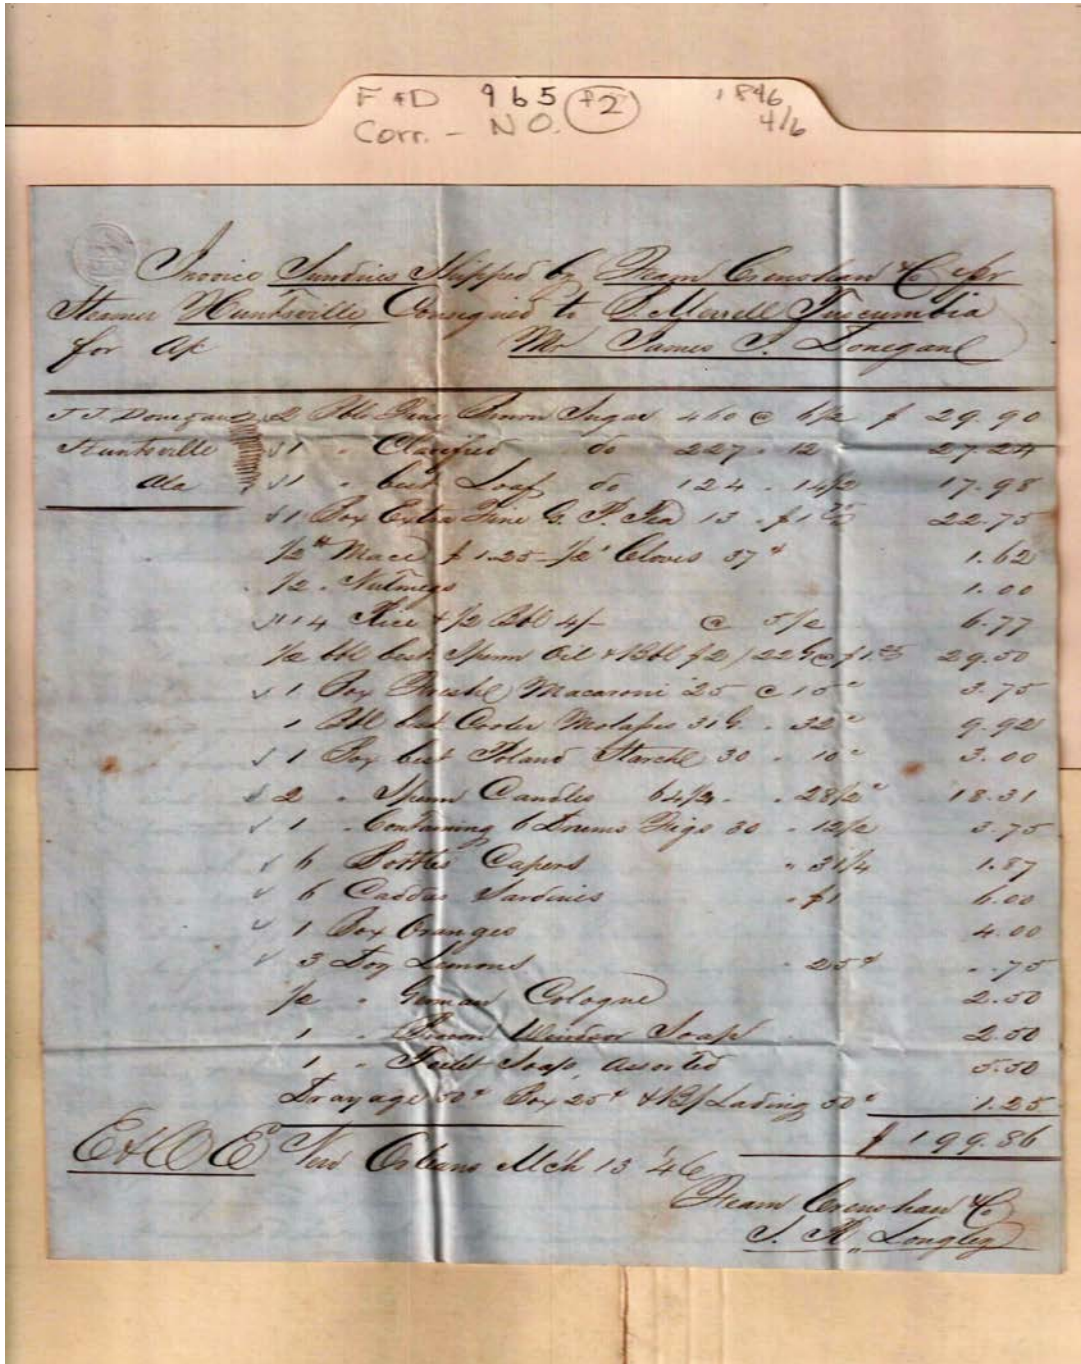 F & D 965 (F2) 1846
Corr. - N O. 4/6
Invoice Sundries Shipped by Fearn Crenshaw & Co pr
Steamer Huntsville, Consigned to S. Merrell Tuscumbia
for a/c Mr James J. Donegan
J J. Donegan 2 Bbls Brown Sugar 460 @ 6 1/2 $ 29.90
Huntsville √ 1 " Clarified do 227 " 12 27.24
Ala √ 1 " best Loaf do 124 " 14 1/2 17.98
√ 1 Box Extra Fine G. P. Tea 13 " $1 75 22.75
1/2 # Mace $ 1.25 - 1/2 " Cloves 37 ¢ 1.62
1/2 " Nutmegs 1.00
Rice & 1/2 Bbl 4/- @ 5 1/2 6.77
1/2 bbl best Sperm Oil & Bbl $2 / 22 G @ $1.25 29.50
√ 1 Box Macaroni 25 @ 15 c 3.75
1 Bbl best Molasses 31 G. " 32 c 9.92
√ 1 Box best Poland Starch 30 " 10 c 3.00
√ 2 " Sperm Candles 64 1/4 " " 28 1/2 c 18.31
√ 1 " Containing 6 Drums Figs 30 " 12 1/2 3.75
√ 6 Bottles Capers " 31 1/4 1.87
√ 6 Sardines " $1 6.00
√ 1 Box Oranges 4.00
√ 3 Doz Lemons " 25 ¢ " .75
1/2 " German Cologne 2.50
1 " Brown Windsor Soap 2.50
1 " Toilet Soap, assorted 5.50
Drayage 50 ¢ Box 25 ¢ & B/Lading 50 c 1.25
$ 199.86
E & O E New Orleans Mch 13 '46
Fearn Crenshaw & Co
S. H. Longley